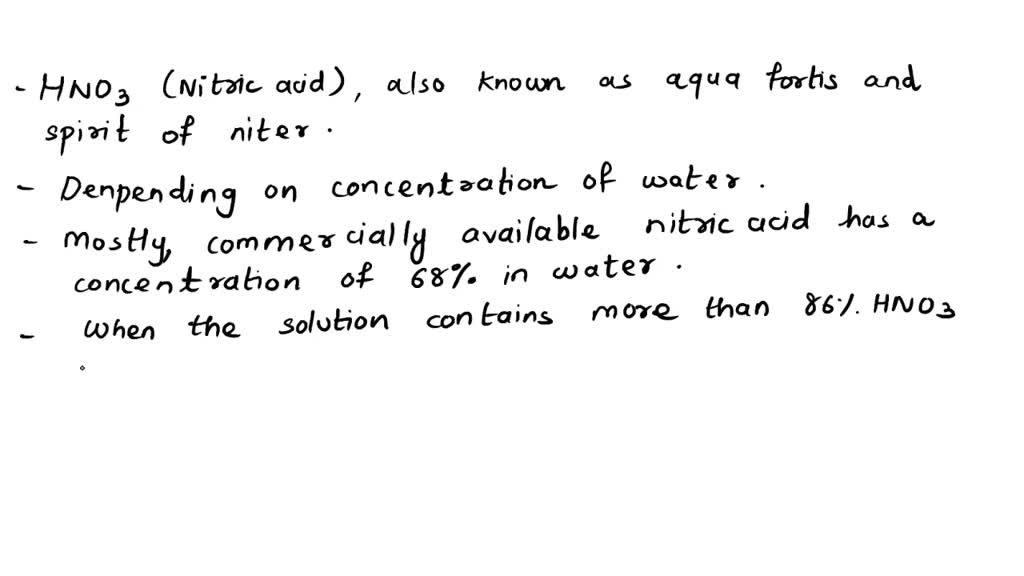 - HNO3 (Nitric acid), also known as aqua fortis and
spirit of niter.
- Denpending on concentration of water.
- Mostly, commercially available nitric acid has a
concentration of 68% in water.
- When the solution contains more than 86% HNO3